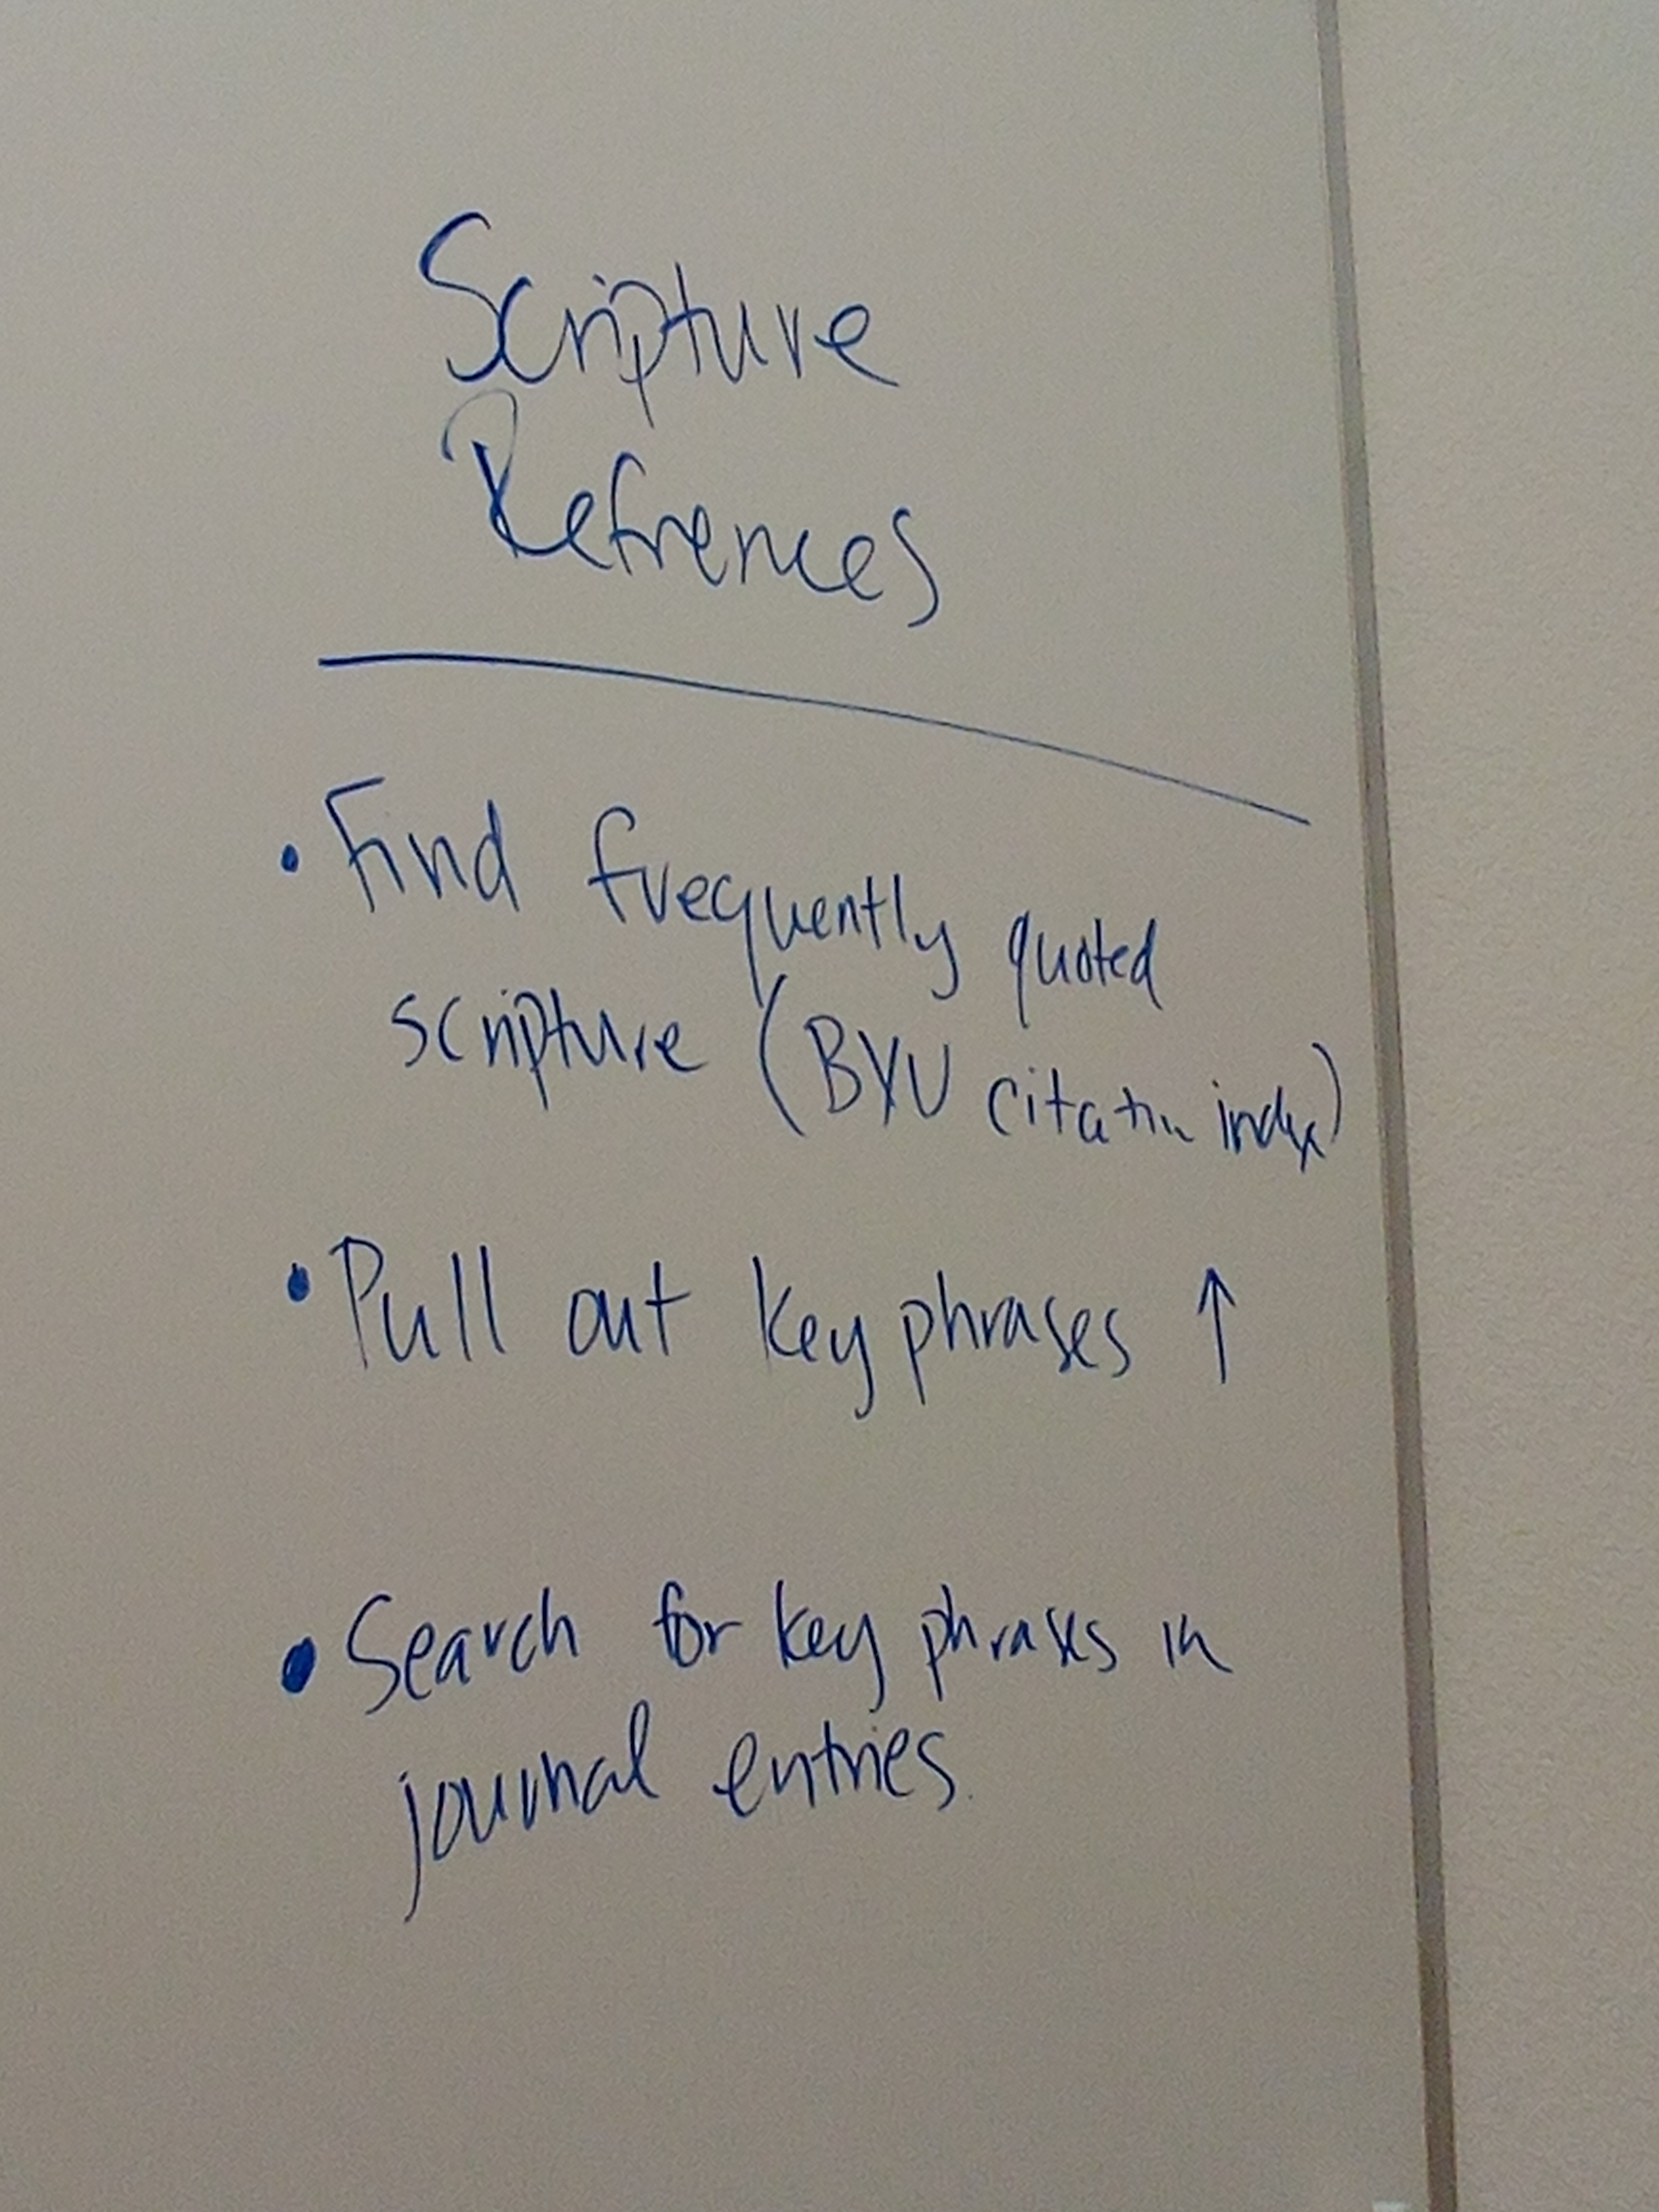 Scripture
Refrences
• Find frequently quoted
scripture (BYU citation index)
• Pull out key phrases ↑
• Search for key phrases in
journal entries.